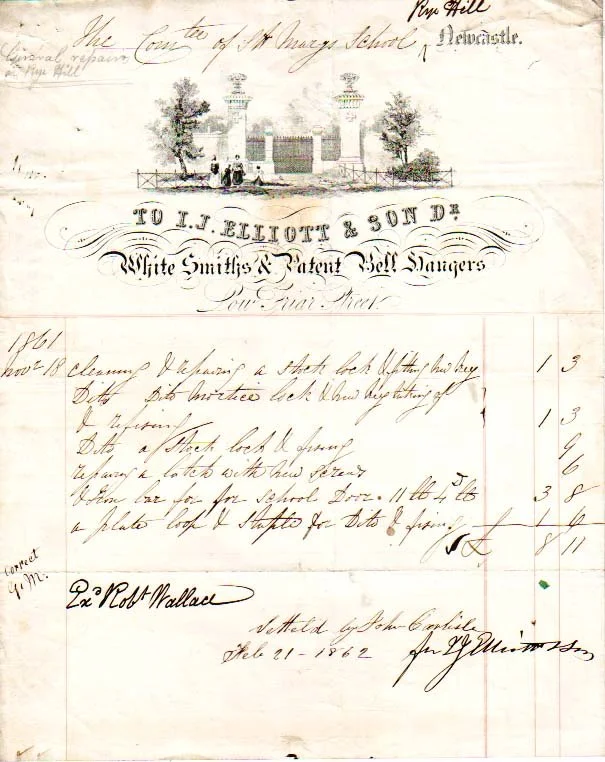 Rye Hill
The Comtee of St Marys School Newcastle.
General repairs
on Rye Hill
TO I.J. ELLIOTT & SON DR
White Smiths & Patent Bell Hangers
Low Friar Street
1861
Novr 18 cleaning & repairing a stock lock & fitting new key 1 3
Ditto Ditto mortice lock & new key fitting of
& refixing 1 3
Ditto a stock lock & fixing 9
repairing a latch with new screws 6
& Iron bar for for school Door. 11 lb 4d lb 3 8
a plate loop & staple for Ditto & fixing 1 6
£ 8 11
Correct
G.M.
Exd Robt Wallace
Setteld by John Carlisle
Feb 21 - 1862 for I J Elliott & Son